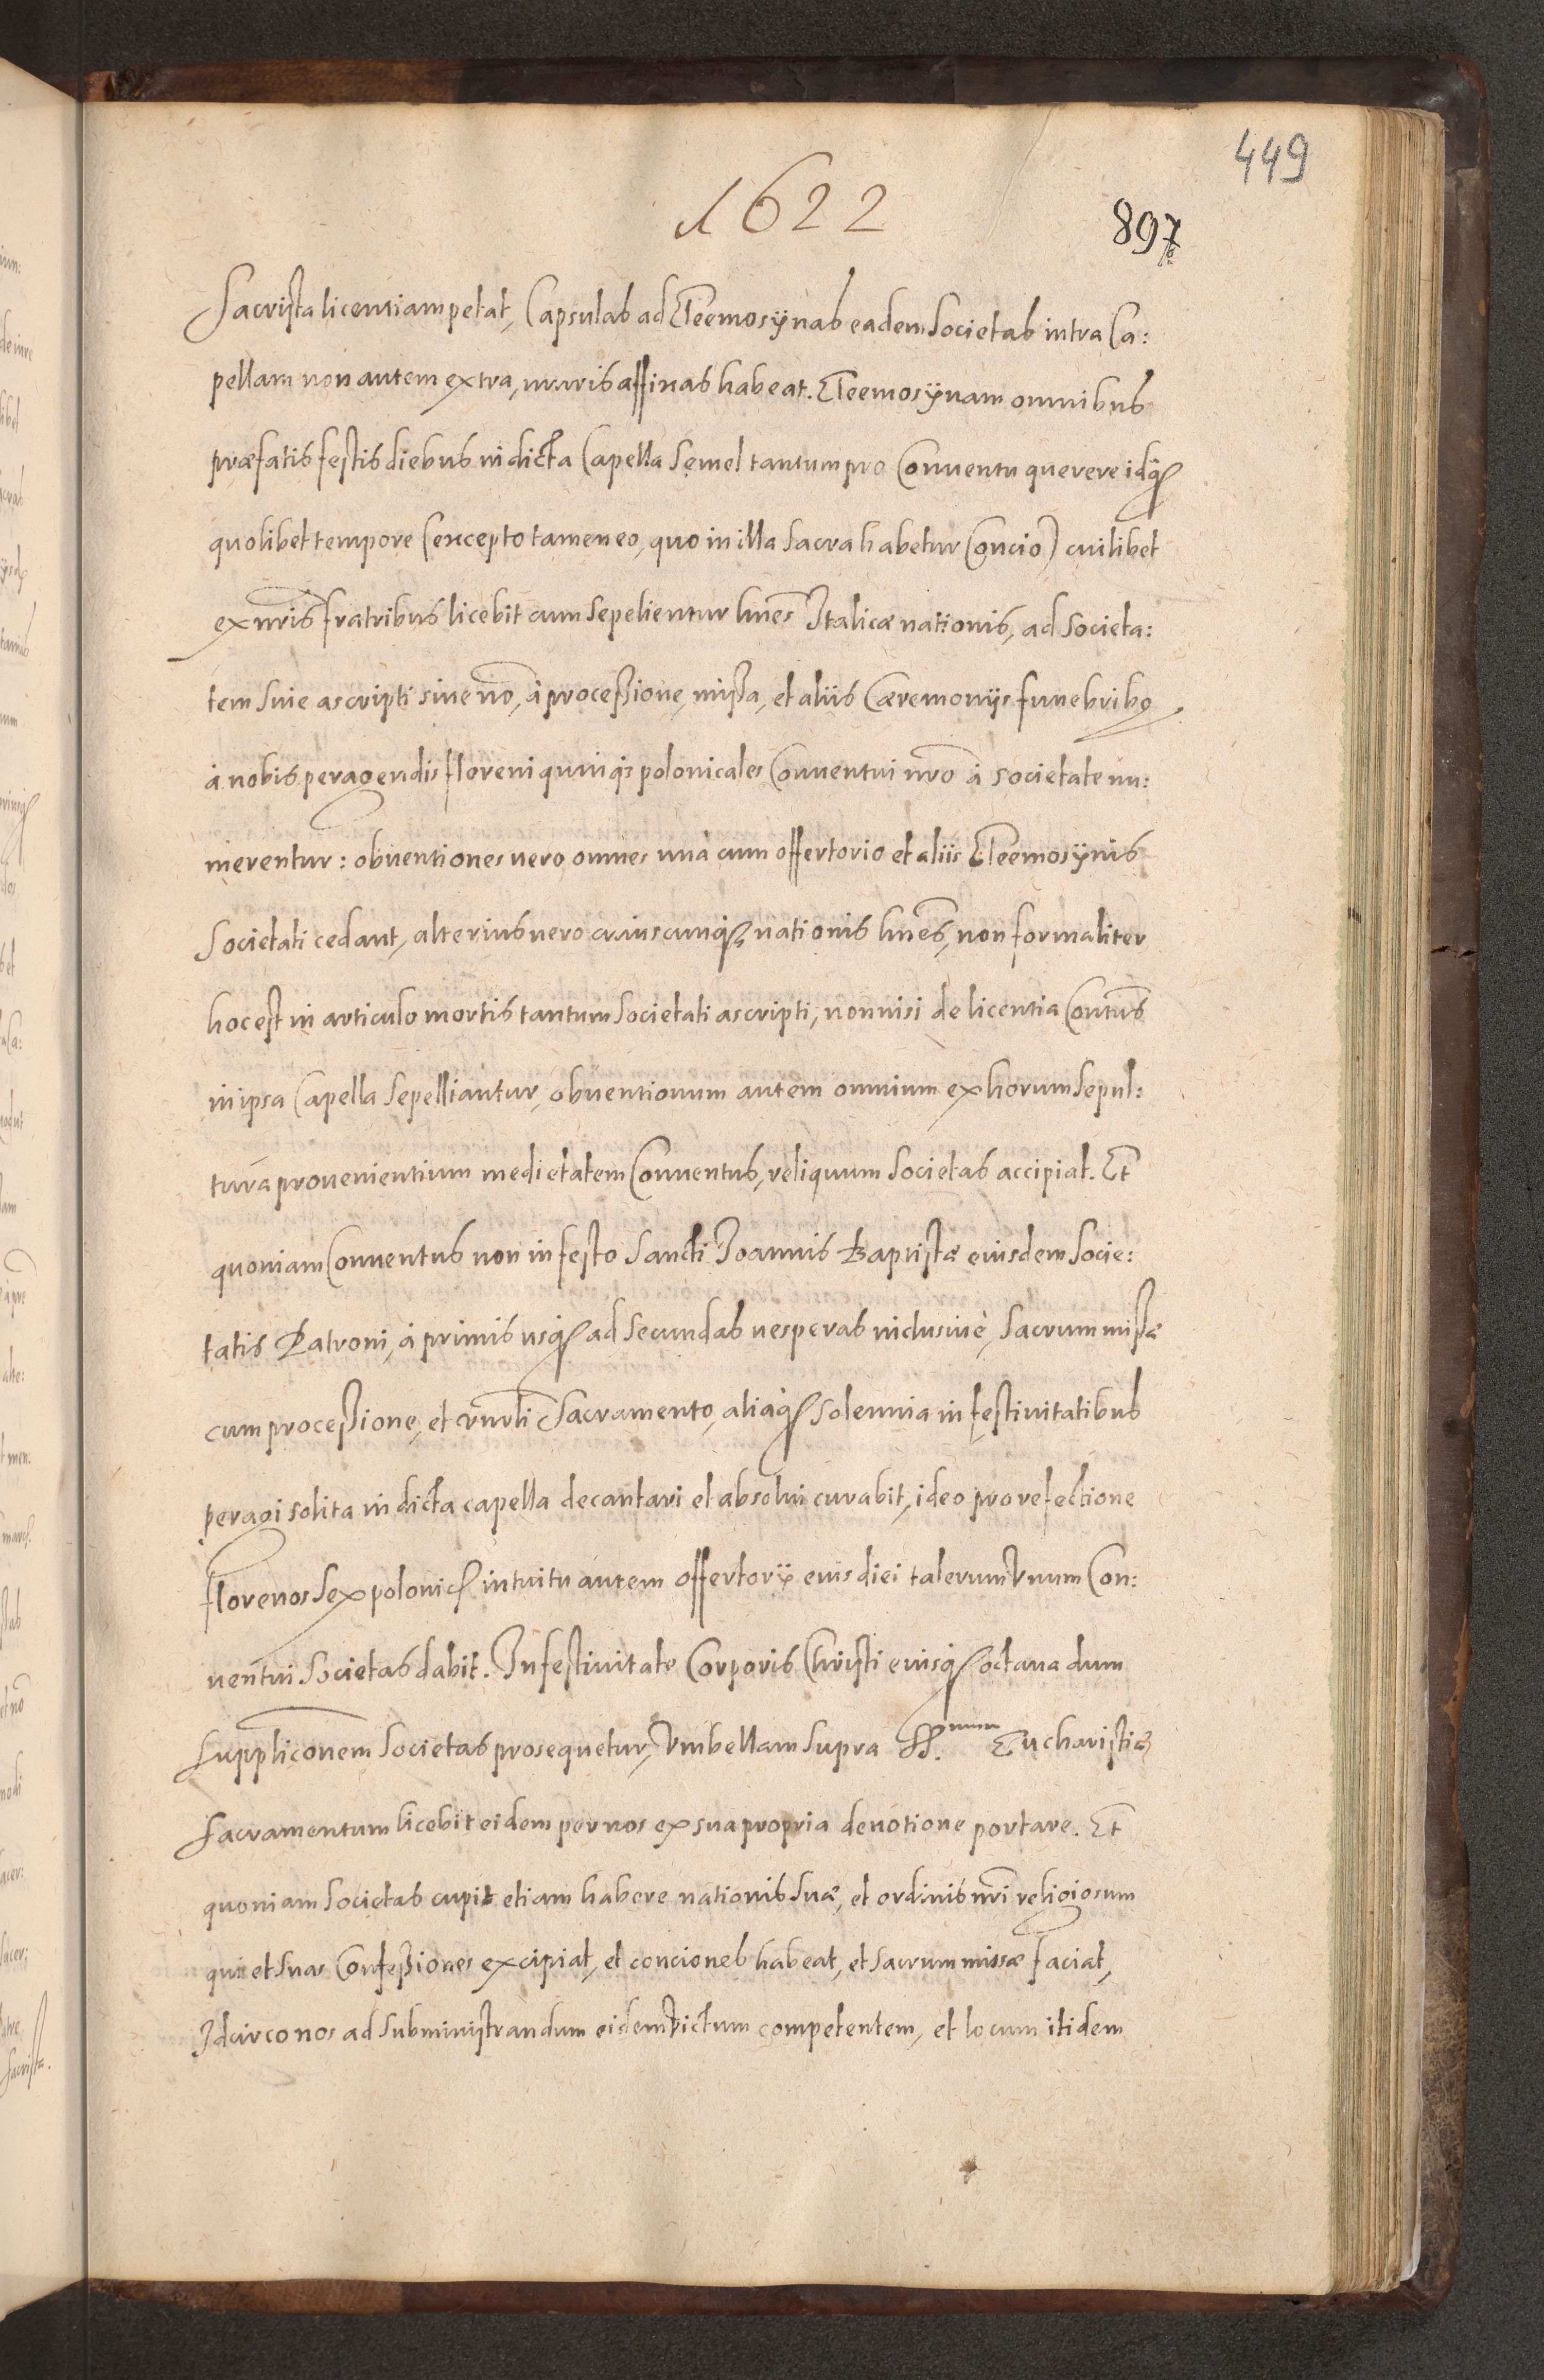 449
1622
897
Sacrista licentiam petat, Capsulas ad Eleemosÿnas eadem Societas intra Ca:
pellam non autem extra, muris affixas habeat. Eleemosÿnam omnibus
præfatis festis diebus in dicta Capella semel tantum pro Conventu querere idq3
quolibet tempore (excepto tamen eo, quo in illa sacra habetur Concio) cuilibet
ex nr̃is fratribus licebit cum sepelientur hnẽs Italicæ nationis, ad societa:
tem siue ascripti siue nõ, à processione, missa, et aliis Cæremoniis funebribq
à nobis peragendis floreni quinq3 polonicales Conuentui nrõ à societate nu:
merentur: obuentiones uero omnes unà cum offertorio et aliis Eleemosÿnis
Societati cedant, alterius uero cuiuscunq3 nationis hnẽs, non formaliter
hoc est in articulo mortis tantum Societati ascripti, nonnisi de licentia Contus̃
in ipsa Capella sepelliantur, obuentionum autem omnium ex horum sepul:
tura prouenientium medietatem Conuentus, reliquum Societas accipiat. Et
quoniam Conuentus non in festo Sancti Joannis Baptistæ eiusdem Socie:
tatis Patroni, à primis usq3 ad secundas uesperas inclusiuè, sacrum missæ
cum processione, et vnrl̃i Sacramento, aliaq3 solennia in festiuitatibus
peragi solita in dicta capella decantari et absolui curabit, ideo pro refectione
florenos sex polonic3 intuitu autem offertorÿ euis diei talerum vnum Con:
uentui Societas dabit. In festiuitate Corporis Christi euisq3 octaua dum
suppliconẽm Societas prosequetur, vmbellam supra SS.mum Eucharistiæ
sacramentum licebit eidem per nos ex sua propria deuotione portare. Et
quoniam Societas cupit etiam habere nationis suæ, et ordinis nrĩ religiosum
qui et suas Confessiones excipiat, et conciones habeat, et sacrum missæ faciat,
Idcirco nos ad subministrandum eidem victum competentem, et locum itidem